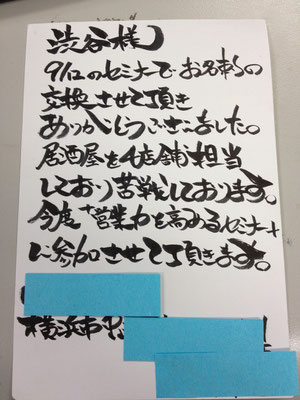 渋谷様
9/12のセミナーでお名刺の
交換させて頂き
ありがとうございました。
居酒屋を4店舗担当
しており苦戦しております。
今度"営業力を高めるセミナー"
に参加させて頂きます。
横浜市